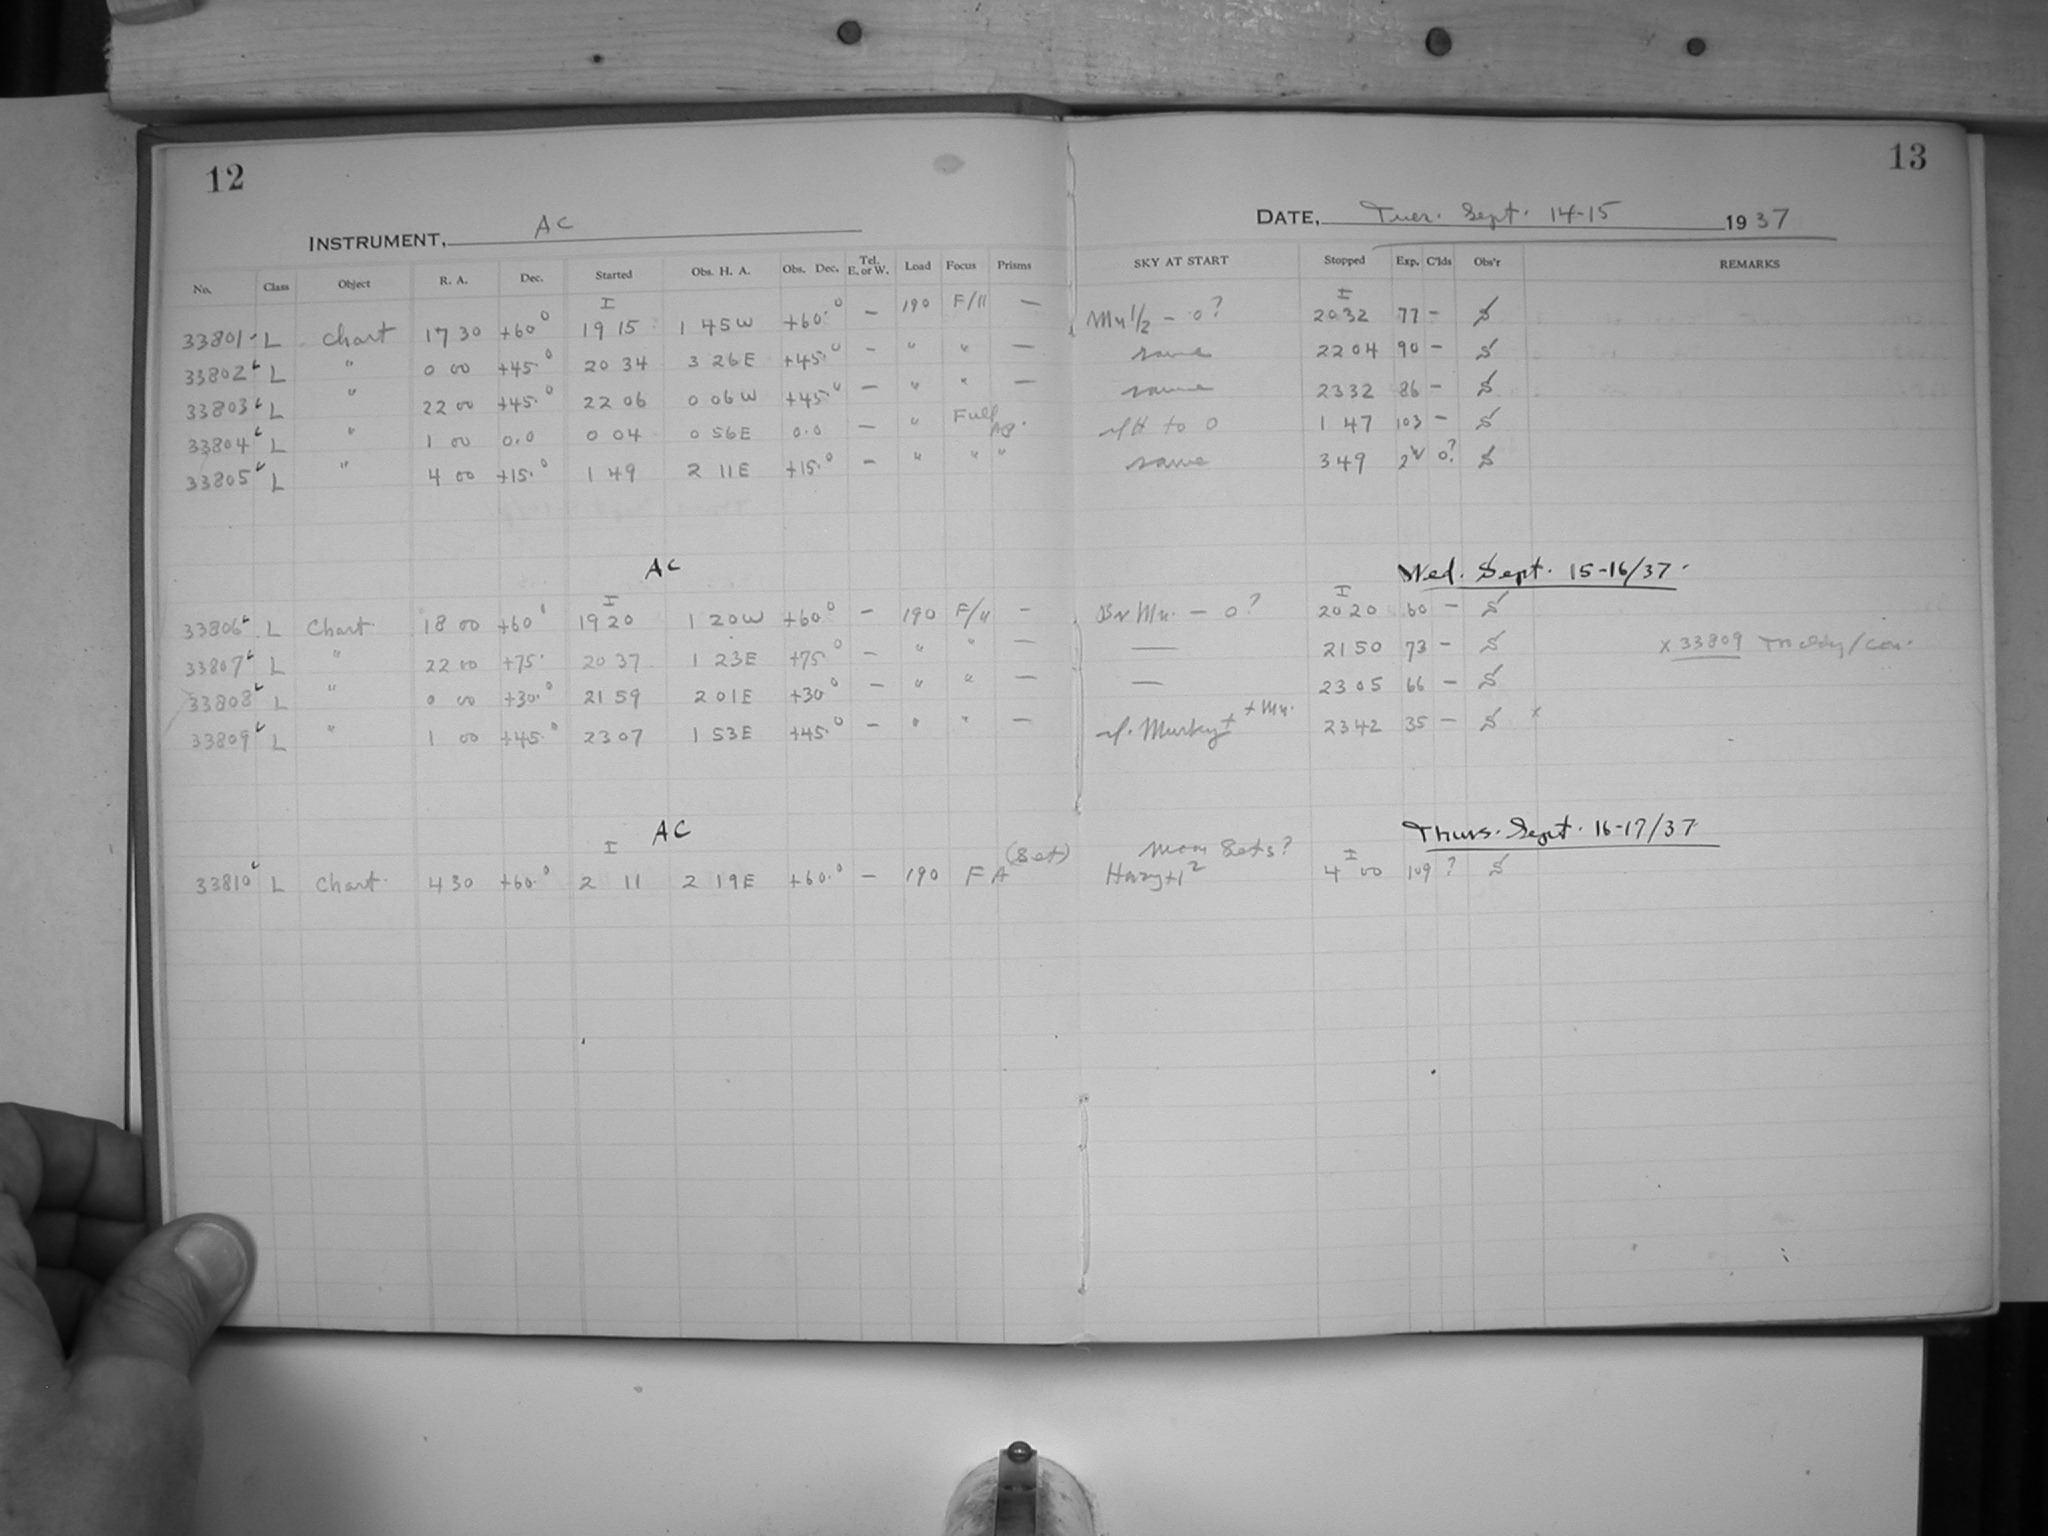 12
INSTRUMENT, AC
No. Class Object R. A. Dec. Started Obs. H. A. Obs. Dec. Tel. E. or W. Load Focus Prisms
I
33801 L Chart 17 30 +60° 19 15 1 45W +60.° — 190 F/11 —
33802 L " 0 00 +45° 20 34 3 26E +45.° — " " —
33803 L " 22 00 +45.° 22 06 0 06W +45.° — " " —
33804 L " 1 00 0.0 0 04 0 56E 0.0 — " Full Ap.
33805 L " 4 00 +15.° 1 49 2 11E +15.° — " " "
AC
I
33806 L Chart 18 00 +60° 19 20 1 20W +60.° — 190 F/11 —
33807 L " 22 00 +75. 20 37 1 23E +75.° — " " —
33808 L " 0 00 +30.° 21 59 2 01E +30° — " " —
33809 L " 1 00 +45.° 23 07 1 53E +45.° — " " —
AC
I
33810 L Chart 4 30 +60.° 2 11 2 19E +60.° — 190 F A (Set)
13
DATE, Tues. Sept. 14-15 1937
SKY AT START Stopped Exp. C'lds Obs'r REMARKS
I
Mn 1/2 — 0? 20 32 77 — S
same 22 04 90 — S
same 23 32 86 — S
to 0 1 47 103 — S
same 3 49 0? S
Wed. Sept. 15-16/37.
I
Br Mn. — 0? 20 20 60 — S
— 21 50 73 — S x 33809
— 23 05 66 — S
Murky + + Mn. 23 42 35 — S x
Thurs. Sept. 16-17/37
Moon Sets? I
Hazy+1² 4 00 109 ? S